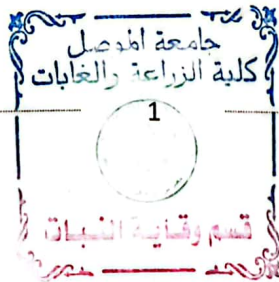 جامعة الموصل
كلية الزراعة والغابات
1
قسم وقاية النبات